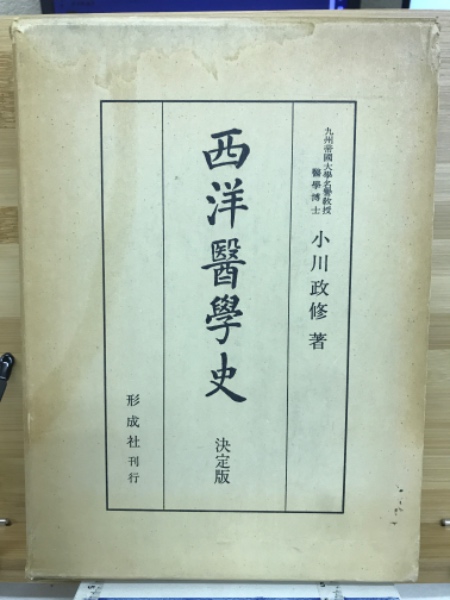 九州帝國大學名譽教授
醫學博士
小川政修著
西洋醫學史
決定版
形成社刊行